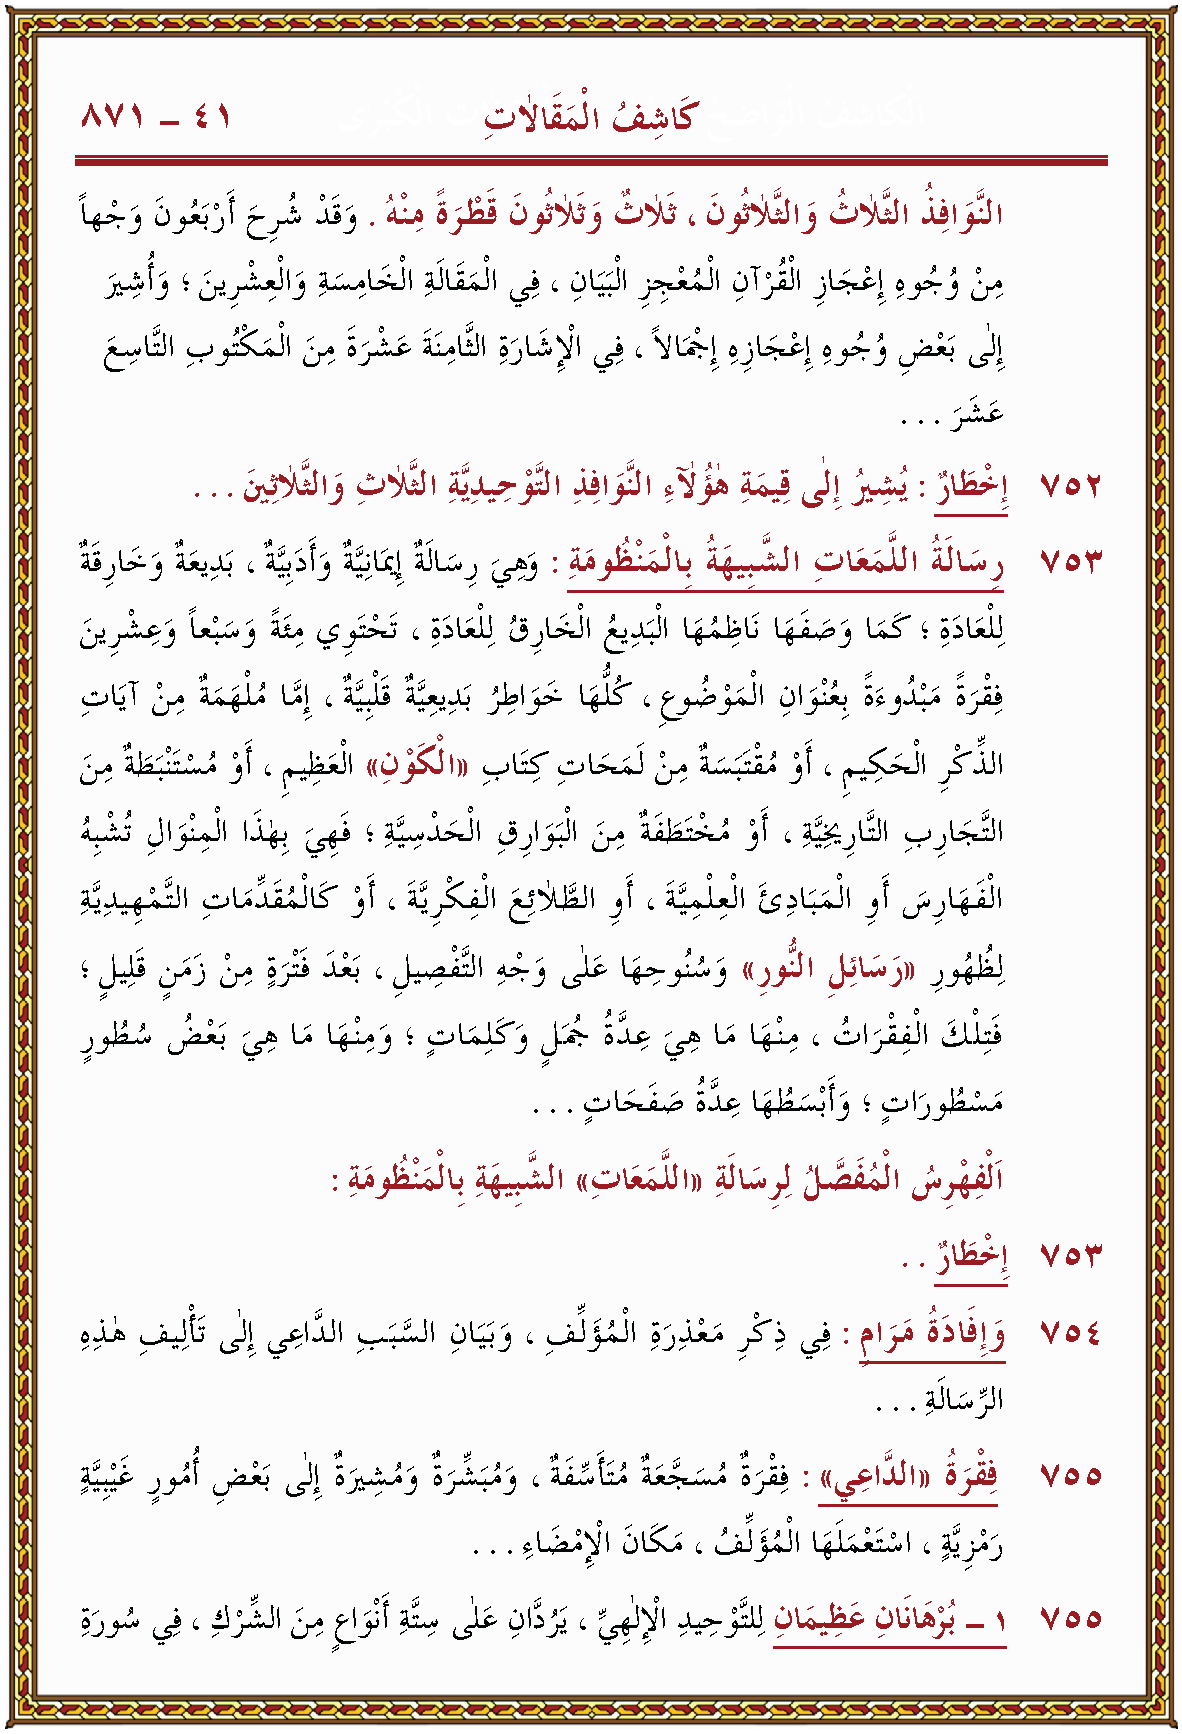 كَاشِفُ الْمَقَالاَتِ ٤١ – ٨٧١
النَّوَافِذُ الثَّلاٰثُ وَالثَّلاٰثُونَ ، ثَلاٰثٌ وَثَلاٰثُونَ قَطْرَةً مِنْهُ . وَقَدْ شُرِحَ أَرْبَعُونَ وَجْهاً
مِنْ وُجُوهِ إِعْجَازِ الْقُرْآنِ الْمُعْجِزِ الْبَيَانِ ، فِي الْمَقَالَةِ الْخَامِسَةِ وَالْعِشْرِينَ ؛ وَأُشِيرَ
إِلٰى بَعْضِ وُجُوهِ إِعْجَازِهِ إِجْمَالاً ، فِي الْإِشَارَةِ الثَّامِنَةَ عَشْرَةَ مِنَ الْمَكْتُوبِ التَّاسِعَ
عَشَرَ . . .
٧٥٢ إِخْطَارٌ : يُشِيرُ إِلٰى قِيمَةِ هٰؤُلآٰءِ النَّوَافِذِ التَّوْحِيدِيَّةِ الثَّلاٰثِ وَالثَّلاٰثِينَ . . .
٧٥٣ رِسَالَةُ اللَّمَعَاتِ الشَّبِيهَةُ بِالْمَنْظُومَةِ : وَهِيَ رِسَالَةٌ إِيمَانِيَّةٌ وَأَدَبِيَّةٌ ، بَدِيعَةٌ وَخَارِقَةٌ
لِلْعَادَةِ ؛ كَمَا وَصَفَهَا نَاظِمُهَا الْبَدِيعُ الْخَارِقُ لِلْعَادَةِ ، تَحْتَوِي مِئَةً وَسَبْعاً وَعِشْرِينَ
فِقْرَةً مَبْدُوءَةً بِعُنْوَانِ الْمَوْضُوعِ ، كُلُّهَا خَوَاطِرُ بَدِيعِيَّةٌ قَلْبِيَّةٌ ، إِمَّا مُلْهَمَةٌ مِنْ آيَاتِ
الذِّكْرِ الْحَكِيمِ ، أَوْ مُقْتَبَسَةٌ مِنْ لَمَحَاتِ كِتَابِ «الْكَوْنِ» الْعَظِيمِ ، أَوْ مُسْتَنْبَطَةٌ مِنَ
التَّجَارِبِ التَّارِيخِيَّةِ ، أَوْ مُخْتَطَفَةٌ مِنَ الْبَوَارِقِ الْحَدْسِيَّةِ ؛ فَهِيَ بِهٰذَا الْمِنْوَالِ تُشْبِهُ
الْفَهَارِسَ أَوِ الْمَبَادِئَ الْعِلْمِيَّةَ ، أَوِ الطَّلاٰئِعَ الْفِكْرِيَّةَ ، أَوْ كَالْمُقَدِّمَاتِ التَّمْهِيدِيَّةِ
لِظُهُورِ «رَسَائِلِ النُّورِ» وَسُنُوحِهَا عَلٰى وَجْهِ التَّفْصِيلِ ، بَعْدَ فَتْرَةٍ مِنْ زَمَنٍ قَلِيلٍ ؛
فَتِلْكَ الْفِقْرَاتُ ، مِنْهَا مَا هِيَ عِدَّةُ جُمَلٍ وَكَلِمَاتٍ ؛ وَمِنْهَا مَا هِيَ بَعْضُ سُطُورٍ
مَسْطُورَاتٍ ؛ وَأَبْسَطُهَا عِدَّةُ صَفَحَاتٍ . . .
اَلْفِهْرِسُ الْمُفَصَّلُ لِرِسَالَةِ «اللَّمَعَاتِ» الشَّبِيهَةِ بِالْمَنْظُومَةِ :
٧٥٣ إِخْطَارٌ . .
٧٥٤ وَإِفَادَةُ مَرَامٍ : فِي ذِكْرِ مَعْذِرَةِ الْمُؤَلِّفِ ، وَبَيَانِ السَّبَبِ الدَّاعِي إِلٰى تَأْلِيفِ هٰذِهِ
الرِّسَالَةِ . . .
٧٥٥ فِقْرَةُ «الدَّاعِي» : فِقْرَةٌ مُسَجَّعَةٌ مُتَأَسِّفَةٌ ، وَمُبَشِّرَةٌ وَمُشِيرَةٌ إِلٰى بَعْضِ أُمُورٍ غَيْبِيَّةٍ
رَمْزِيَّةٍ ، اسْتَعْمَلَهَا الْمُؤَلِّفُ ، مَكَانَ الْإِمْضَاءِ . . .
٧٥٥ ١ – بُرْهَانَانِ عَظِيمَانِ لِلتَّوْحِيدِ الْإِلٰهِيِّ ، يَرُدَّانِ عَلٰى سِتَّةِ أَنْوَاعٍ مِنَ الشِّرْكِ ، فِي سُورَةِ